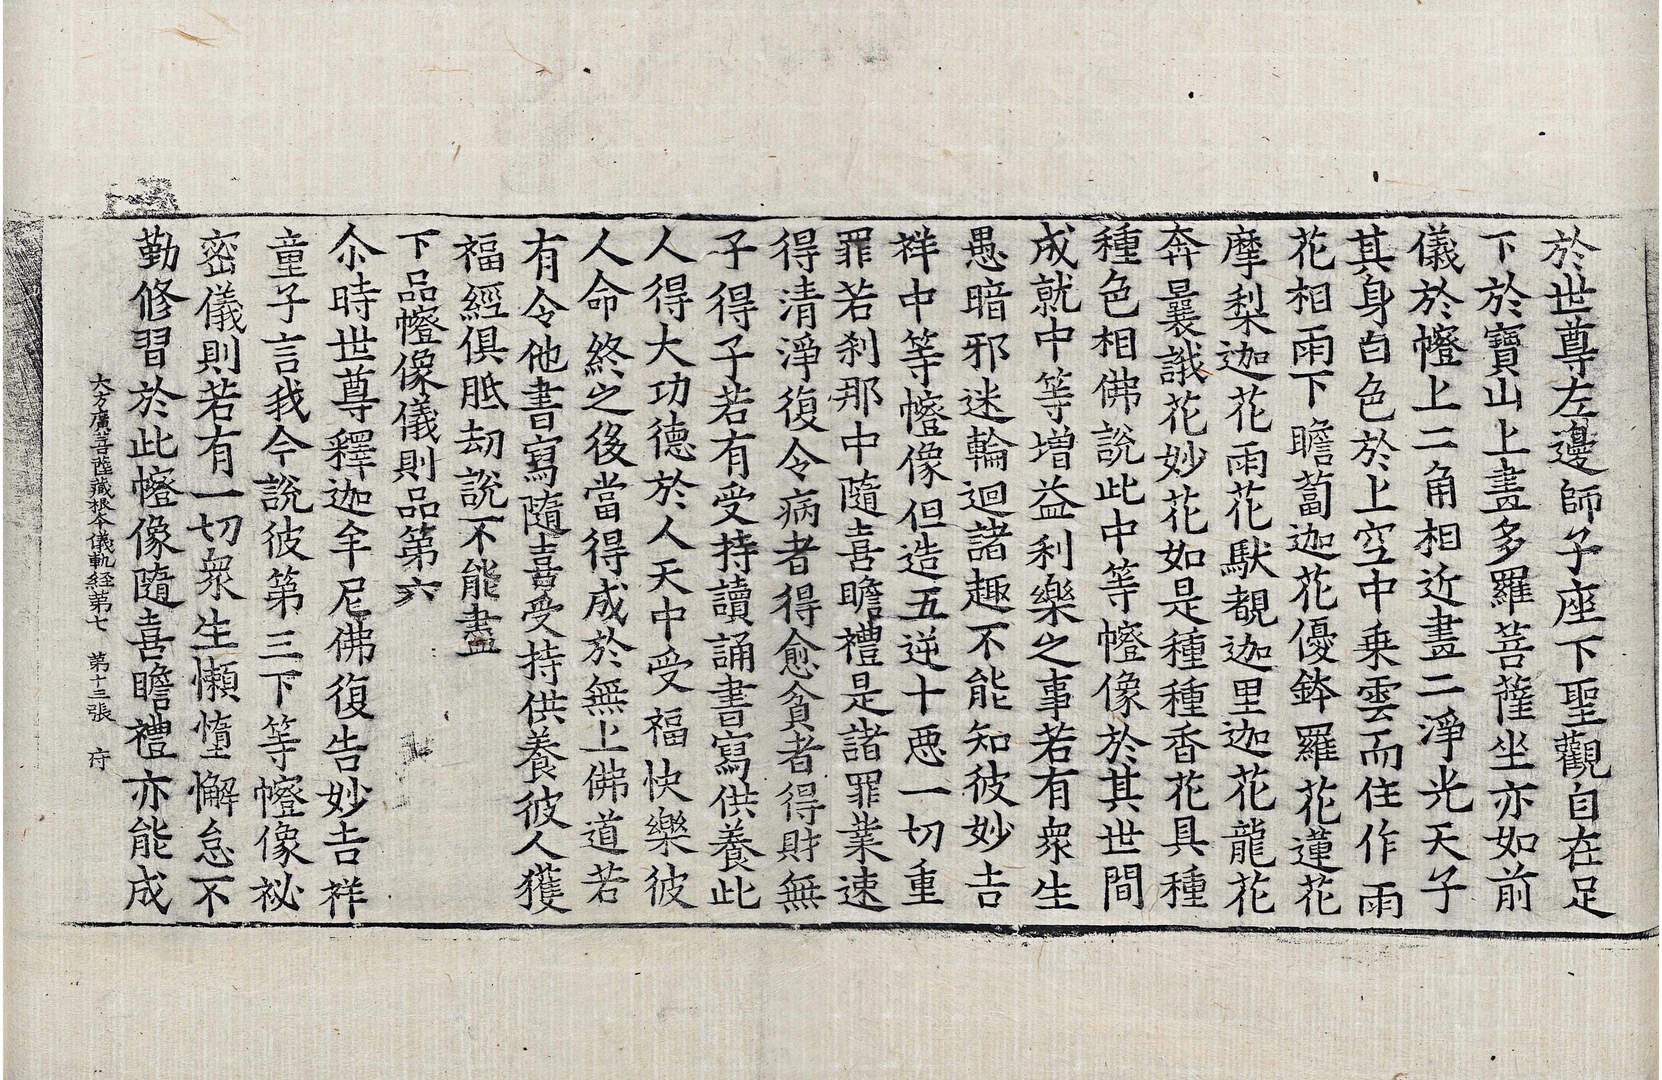 於世尊左邊師子座下聖觀自在足
下於寶山上畫多羅菩薩坐亦如前
儀於㡧上二角相近畫二淨光天子
其身白色於上空中乗雲而住作雨
花相雨下瞻蔔迦花優鉢羅花蓮花
摩梨迦花雨花䭾覩迦里迦花龍花
奔曩誐花妙花如是種種香花具種
種色相佛說此中等㡧像於其世間
成就中等增益利樂之事若有衆生
愚暗邪迷輪迴諸趣不能知彼妙吉
祥中等㡧像但造五逆十惡一切重
罪若刹那中隨喜瞻禮是諸罪業速
得清淨復令病者得愈貧者得財無
子得子若有受持讀誦書寫供養此
人得大功德於人天中受福快樂彼
人命終之後當得成於無上佛道若
有令他書寫隨喜受持供養彼人獲
福經俱胝劫說不能盡
下品㡧像儀則品第六
尒時世尊釋迦牟尼佛復告妙吉祥
童子言我今說彼第三下等㡧像祕
密儀則若有一切衆生懶墮懈怠不
勤修習於此㡧像隨喜瞻禮亦能成
大方廣菩薩藏根本儀軌経第七 第十三張 府